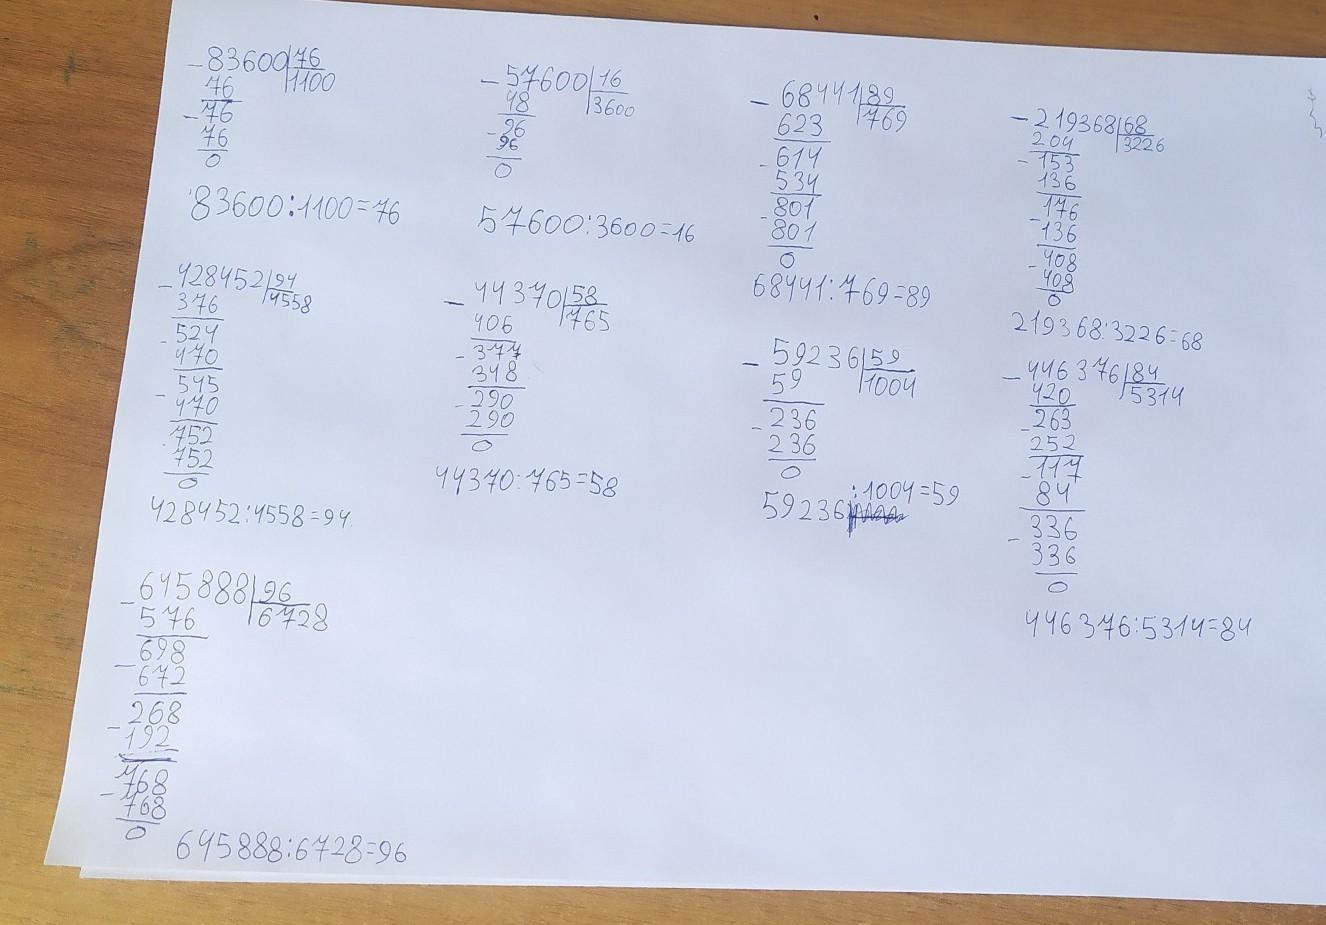 -83600|76
76 1100
-76
76
0
83600:1100=76
-57600|16
48 3600
-96
96
0
57600:3600=16
-68441|89
623 769
-614
534
-801
801
0
68441:769=89
-219368|68
204 3226
-153
136
-176
136
-408
408
0
219368:3226=68
-428452|94
376 4558
-524
470
-545
470
-752
752
0
428452:4558=94
-44370|58
406 765
-377
348
-290
290
0
44370:765=58
-59236|59
59 1004
-236
236
0
59236:1004=59
-446376|84
420 5314
-263
252
-117
84
-336
336
0
446376:5314=84
-645888|96
576 6728
-698
672
-268
192
-768
768
0
645888:6728=96